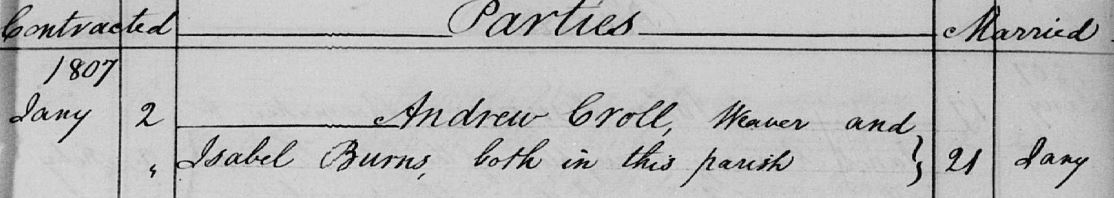 Contracted Parties Married
1807
Jany 2 Andrew Croll, Weaver and
" Isabel Burns, both in this parish } 21 Jany